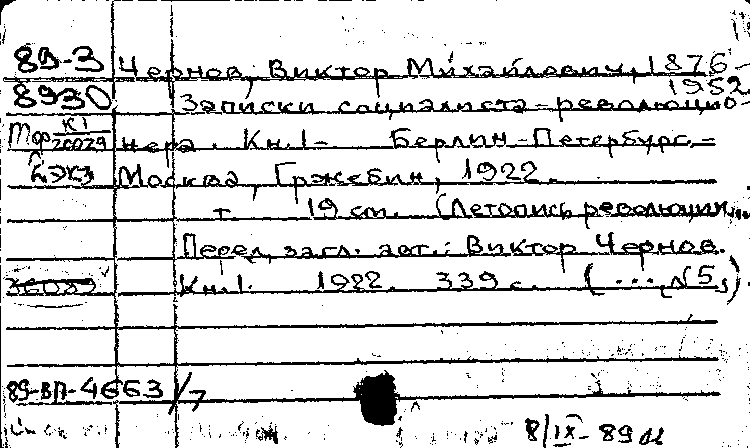 89-3 Чернов, Виктор Михайлович, 1876-
1952
8930 Записки социалиста-революцио-
нера. Кн.1- Берлин-Петербург-
2 экз Москва, Гржебин, 1922.
т 19 cm. (Летопись революции,
Перед загл. авт.: Виктор Чернов.
Кн.1. 1922. 339 с. (...,№5,)
89-ВП-4663/7
8/IX-89